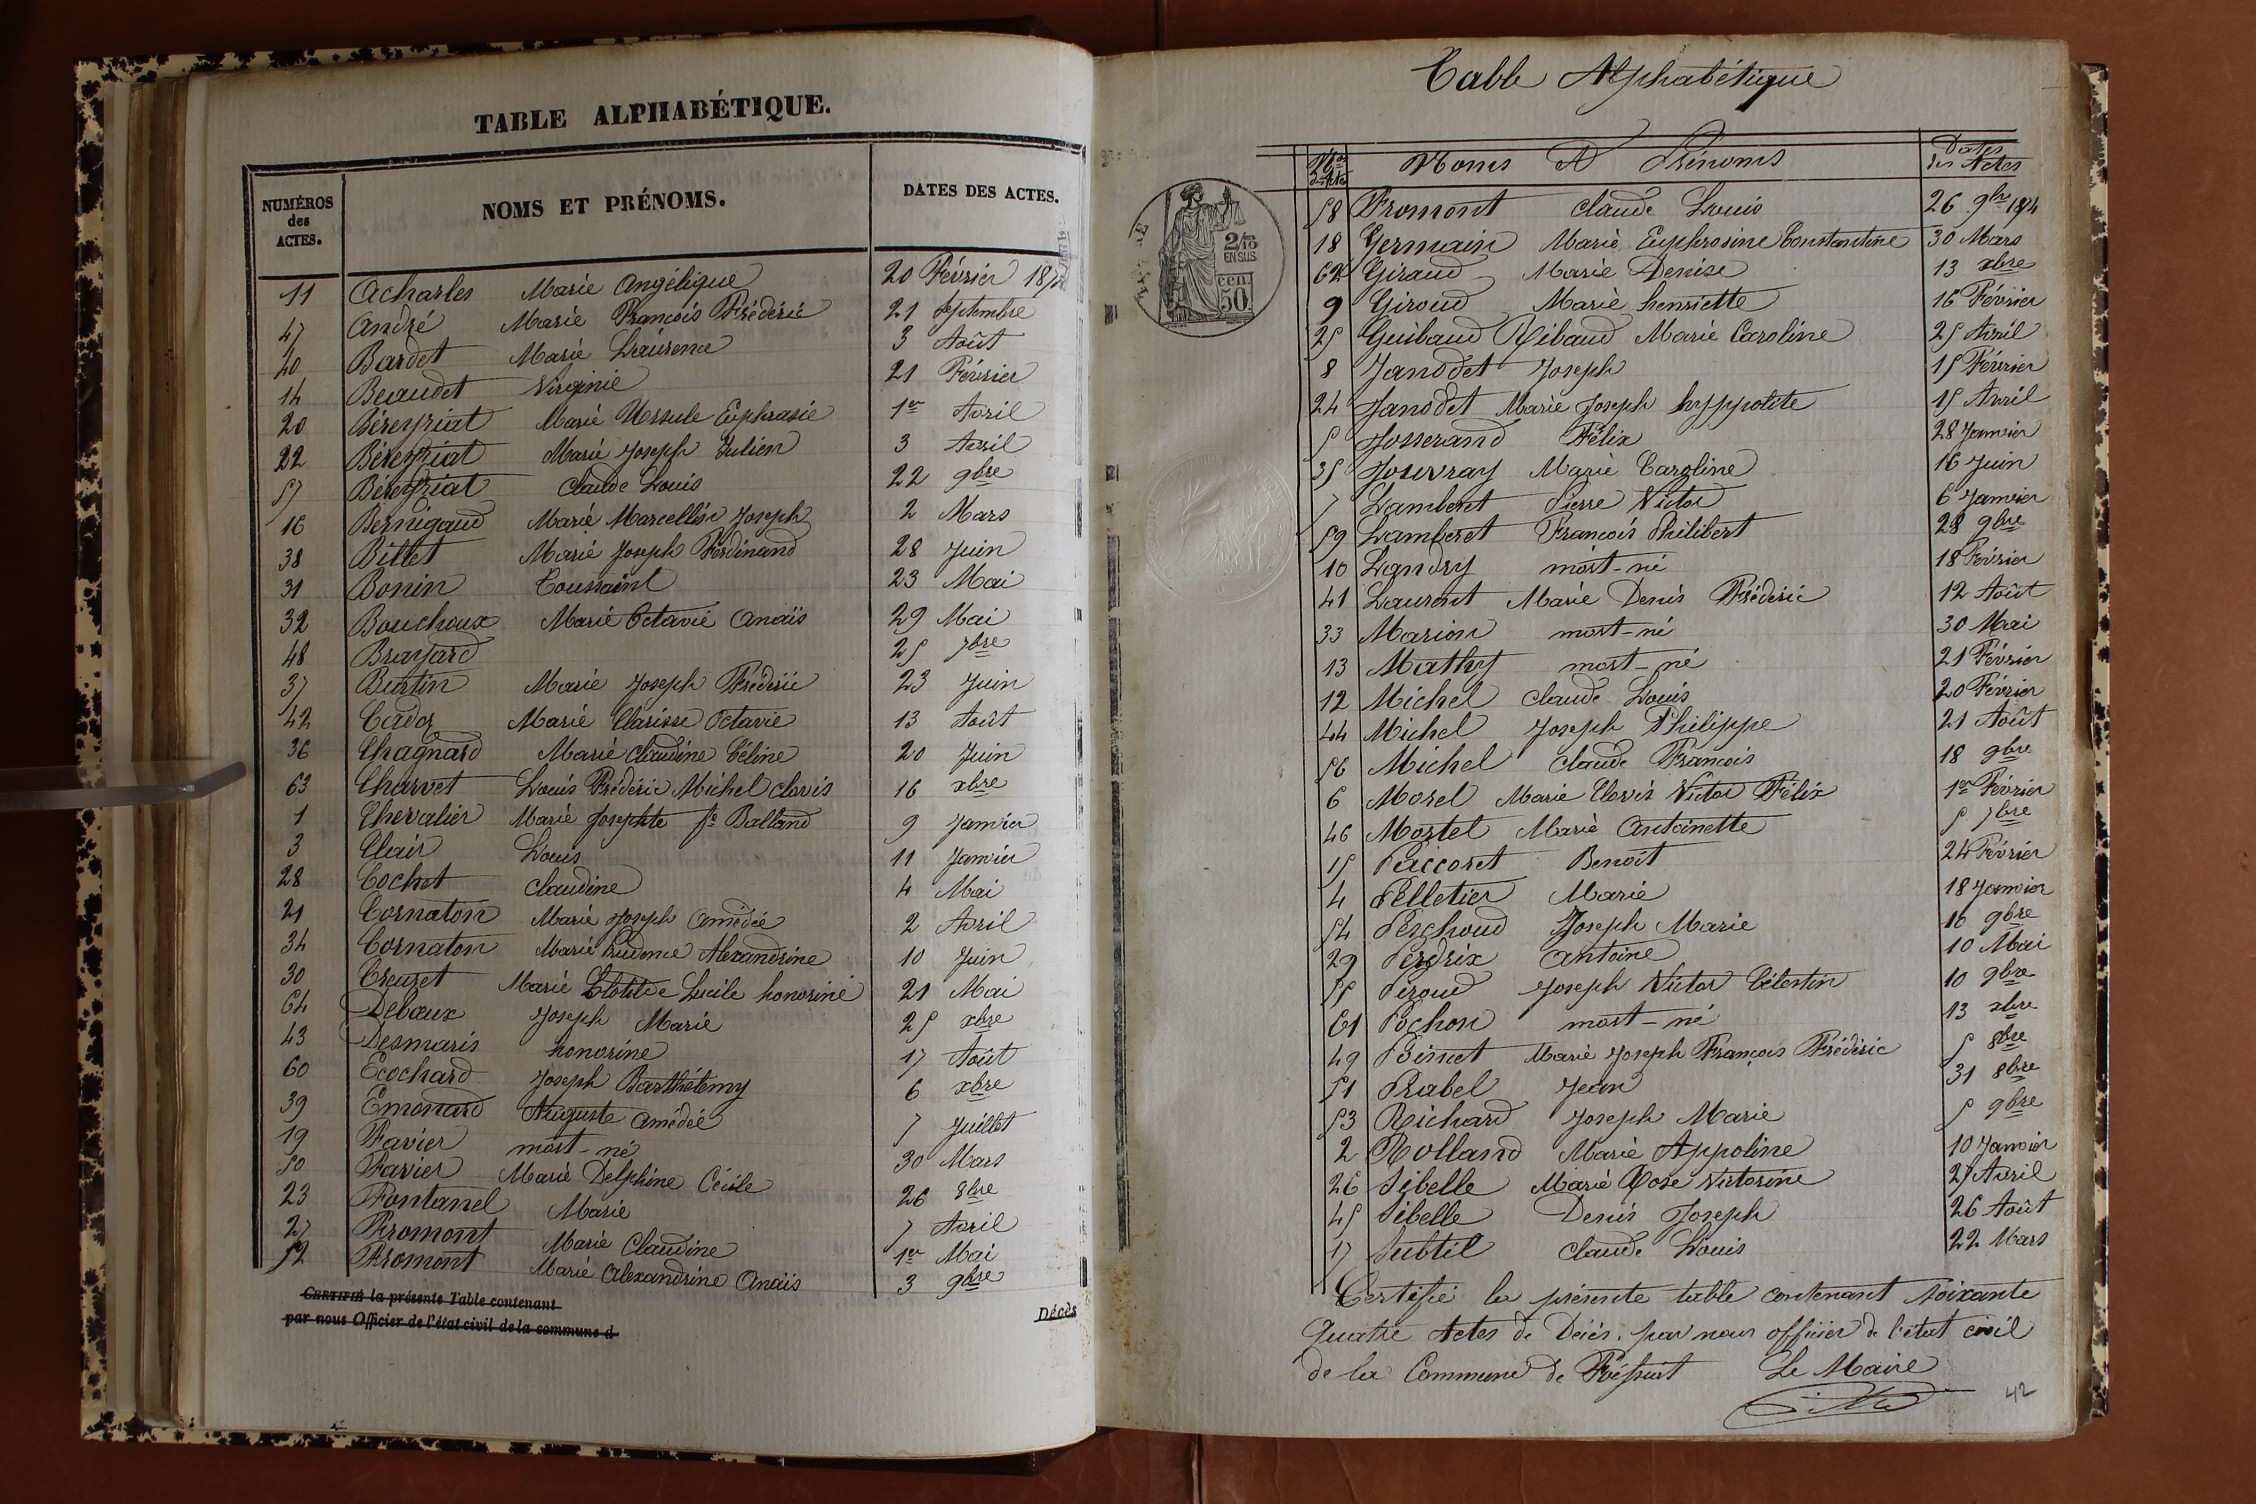 TABLE ALPHABÉTIQUE.
NUMÉROS des ACTES. NOMS ET PRÉNOMS. DATES DES ACTES.
11 Acharles Marie Angélique 20 Février
47 André Marie François Frédéric 21 Septembre
40 Bardet Marie Laurence 3 Août
14 Beaudet Virginie 21 Février
20 Béreyziat Marie Ursule Euphrasie 1er Avril
22 Béreyziat Marie Joseph Julien 3 Avril
57 Béreyziat Claude Louis 22 9bre
16 Bernigaud Marie Marcellin Joseph 2 Mars
38 Billet Marie Joseph Ferdinand 28 Juin
31 Bonin Toussaint 23 Mai
32 Bouchoux Marie Octavie Anaïs 29 Mai
48 Brayard 25 7bre
37 Burtin Marie Joseph Frédéric 23 Juin
42 Cadoz Marie Clarisse Octavie 13 Août
36 Chagnard Marie Claudine Céline 20 Juin
63 Charvet Louis Frédéric Michel Clovis 16 xbre
1 Chevalier Marie Josephte fe Balland 9 Janvier
3 Clair Louis 11 Janvier
28 Cochet Claudine 4 Mai
21 Cornaton Marie Joseph Amédée 2 Avril
34 Cornaton Marie Prudence Alexandrine 10 Juin
30 Creuzet Marie Clotilde Lucile honorine 21 Mai
64 Debaux Joseph Marie 25 xbre
43 Desmaris honorine 17 Août
60 Ecochard Joseph Barthélemy 6 xbre
39 Emonard Auguste Amédée 7 Juillet
19 Favier mort-né 30 Mars
50 Favier Marie Delphine Cécile 26 8bre
23 Fontanel Marie 7 Avril
27 Fromont Marie Claudine 1er Mai
52 Fromont Marie Alexandrine Anaïs 3 9bre
CERTIFIÉ la présente Table contenant
par nous Officier de l'état civil de la commune d
Décès
Table Alphabétique
Nos Noms et Prénoms Dates des Actes
58 Fromont Claude Louis 26 9bre 1874
18 Germain Marie Euphrosine Constantine 30 Mars
62 Giraud Marie Denise 13 xbre
9 Giroud Marie henriette 16 Février
25 Guibaud Ribaud Marie Caroline 25 Avril
8 Janodet Joseph 15 Février
24 Janodet Marie Joseph hyppolite 15 Avril
5 Josserand Félix 28 Janvier
35 Jouvray Marie Caroline 16 Juin
7 Lamberet Pierre Victor 6 Janvier
59 Lamberet François Philibert 28 9bre
10 Landry mort-né 18 Février
41 Laurent Marie Denis Frédéric 12 Août
33 Marion mort-né 30 Mai
13 Mathy mort-né 21 Février
12 Michel Claude Louis 20 Février
44 Michel Joseph Philippe 21 Août
56 Michel Claude François 18 9bre
6 Morel Marie Clovis Victor Félix 1er Février
46 Mortel Marie Antoinette 5 7bre
15 Paccoret Benoît 24 Février
4 Pelletier Marie 18 Janvier
54 Perchoud Joseph Marie 10 9bre
29 Perdrix Antoine 10 Mai
55 Peroud Joseph Victor Célestin 10 9bre
61 Pochon mort-né 13 xbre
49 Poinset Marie Joseph François Frédéric 5 8bre
51 Rabel Jean 31 8bre
53 Richard Joseph Marie 5 9bre
2 Rolland Marie Appoline 10 Janvier
26 Sibelle Marie Rose Victorine 27 Avril
45 Sibelle Denis Joseph 26 Août
17 Subtil Claude Louis 22 Mars
2/10 EN SUS
50 cen.
Certifié la présente table contenant soixante
quatre Actes de Décès. par nous officier de l'état civil
de la Commune de Foissiat Le Maire
42